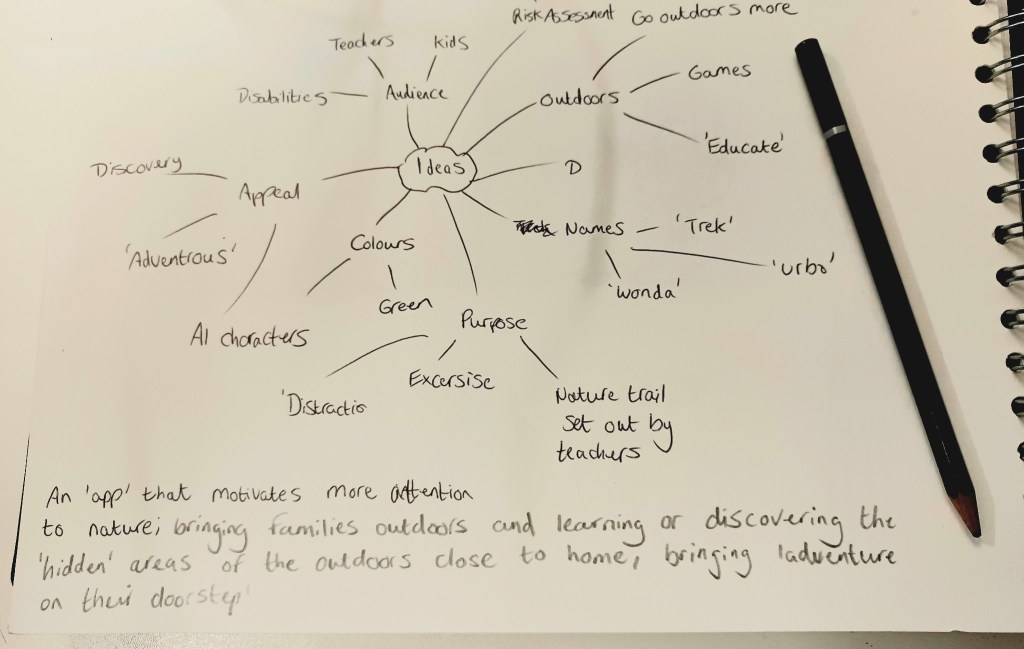 Risk Assessment
Go outdoors more
Teachers
kids
Games
Disabilities
Audience
Outdoors
'Educate'
Discovery
Ideas
D
Appeal
Names
'Trek'
'Adventrous'
Colours
'urbo'
'wonda'
Green
AI characters
Purpose
Excersise
'Distractio
Nature trail
set out by
teachers
An 'app' that motivates more attention
to nature; bringing families outdoors and learning or discovering the
'hidden' areas of the outdoors close to home, bringing 'adventure
on their doorstep'